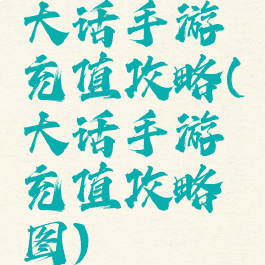 大话手游
充值攻略(
大话手游
充值攻略
图)